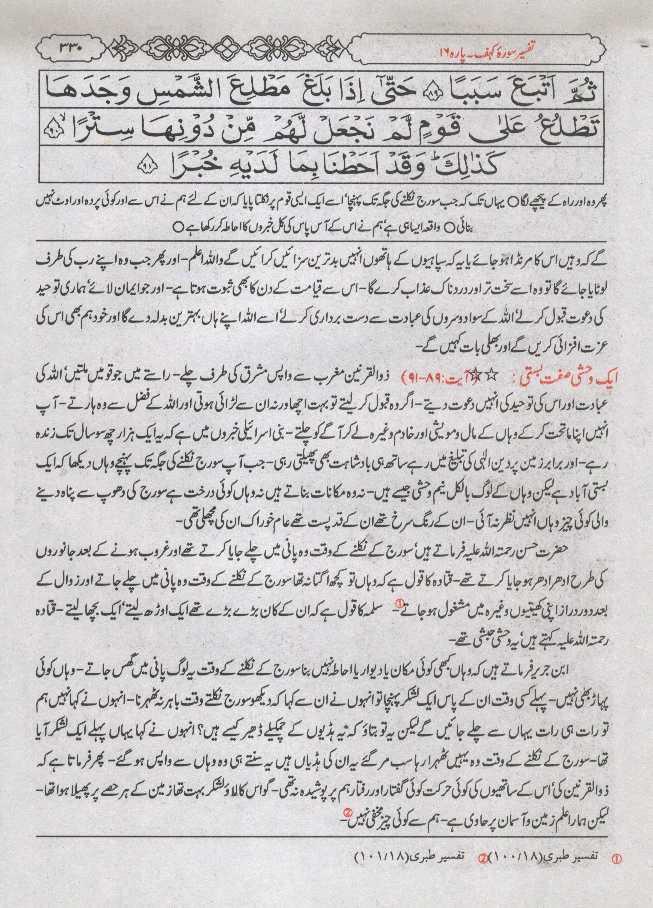 تفسیر سورۂ کہف۔ پارہ ۱۶
۳۳۰
ثُمَّ اَتْبَعَ سَبَبًا ﴿۸۹﴾ حَتّٰۤى اِذَا بَلَغَ مَطْلِعَ الشَّمْسِ وَجَدَهَا
تَطْلُعُ عَلٰى قَوْمٍ لَّمْ نَجْعَلْ لَّهُمْ مِّنْ دُوْنِهَا سِتْرًا ﴿۹۰﴾ۙ
كَذٰلِكَ ؕ وَقَدْ اَحَطْنَا بِمَا لَدَيْهِ خُبْرًا ﴿۹۱﴾
پھر وہ اور راہ کے پیچھے لگا ○ یہاں تک کہ جب سورج نکلنے کی جگہ تک پہنچا' اسے ایک ایسی قوم پر نکلتا پایا کہ ان کے لئے ہم نے اس سے اور کوئی پردہ اور اوٹ نہیں
بنائی ○ واقعہ ایسا ہی ہے' ہم نے اس کے آس پاس کی کل خبروں کا احاطہ کر رکھا ہے ○
گے کہ وہیں اس کا مرنڈا ہو جائے یا یہ کہ سپاہیوں کے ہاتھوں انہیں بدترین سزائیں کرائیں گے واللہ اعلم- اور پھر جب وہ اپنے رب کی طرف
لوٹایا جائے گا تو وہ اسے سخت تر اور دردناک عذاب کرے گا- اس سے قیامت کے دن کا بھی ثبوت ہوتا ہے- اور جو ایمان لائے' ہماری توحید
کی دعوت قبول کر لے' اللہ کے سوا دوسروں کی عبادت سے دست برداری کر لے' اسے اللہ اپنے ہاں بہترین بدلہ دے گا اور خود ہم بھی اس کی
عزت افزائی کریں گے اور بھلی بات کہیں گے-
ایک وحشی صفت بستی : ☆☆ (آیت:۸۹-۹۱) ذوالقرنین مغرب سے واپس مشرق کی طرف چلے- راستے میں جو قومیں ملتیں' اللہ کی
عبادت اور اس کی توحید کی انہیں دعوت دیتے- اگر وہ قبول کر لیتے تو بہت اچھا ورنہ ان سے لڑائی ہوتی اور اللہ کے فضل سے وہ ہارتے- آپ
انہیں اپنا ماتحت کر کے وہاں کے مال و مویشی اور خادم وغیرہ لے کر آگے کو چلتے- بنی اسرائیلی خبروں میں ہے کہ یہ ایک ہزار چھ سو سال تک زندہ
رہے- اور برابر زمین پر دین الٰہی کی تبلیغ میں رہے ساتھ ہی بادشاہت بھی پھیلتی رہی- جب آپ سورج نکلنے کی جگہ تک پہنچے وہاں دیکھا کہ ایک
بستی آباد ہے لیکن وہاں کے لوگ بالکل نیم وحشی جیسے ہیں- نہ وہ مکانات بناتے ہیں نہ وہاں کوئی درخت ہے سورج کی دھوپ سے پناہ دینے
والی کوئی چیز وہاں انہیں نظر نہ آئی- ان کے رنگ سرخ تھے ان کے قد پست تھے عام خوراک ان کی مچھلی تھی-
حضرت حسن رحمتہ اللہ علیہ فرماتے ہیں' سورج کے نکلنے کے وقت وہ پانی میں چلے جایا کرتے تھے اور غروب ہونے کے بعد جانوروں
کی طرح ادھر ادھر ہو جایا کرتے تھے- قتادہ کا قول ہے کہ وہاں تو کچھ اگتا نہ تھا سورج کے نکلنے کے وقت وہ پانی میں چلے جاتے اور زوال کے
بعد دور دراز اپنی کھیتیوں وغیرہ میں مشغول ہو جاتے① سلمہ کا قول ہے کہ ان کے کان بڑے بڑے تھے ایک اوڑھ لیتے' ایک بچھا لیتے- قتادہ
رحمتہ اللہ علیہ کہتے ہیں' یہ وحشی حبشی تھے-
ابن جریر فرماتے ہیں کہ وہاں کبھی کوئی مکان یا دیوار یا احاطہ نہیں بنا سورج کے نکلنے کے وقت یہ لوگ پانی میں گھس جاتے- وہاں کوئی
پہاڑ بھی نہیں- پہلے کسی وقت ان کے پاس ایک لشکر پہنچا تو انہوں نے ان سے کہا کہ دیکھو سورج نکلتے وقت باہر نہ ٹھہرنا- انہوں نے کہا نہیں ہم
تو رات ہی رات یہاں سے چلے جائیں گے لیکن یہ تو بتاؤ کہ یہ ہڈیوں کے چمکیلے ڈھیر کیسے ہیں؟ انہوں نے کہا یہاں پہلے ایک لشکر آیا
تھا- سورج کے نکلنے کے وقت وہ یہیں ٹھہرا رہا سب مر گئے یہ ان کی ہڈیاں ہیں یہ سنتے ہی وہ وہاں سے واپس ہو گئے- پھر فرماتا ہے کہ
ذوالقرنین کی' اس کے ساتھیوں کی کوئی حرکت کوئی گفتار اور رفتار ہم پر پوشیدہ نہ تھی- گو اس کا لاؤ لشکر بہت تھا زمین کے ہر حصے پر پھیلا ہوا تھا-
لیکن ہمارا علم زمین و آسمان پر حاوی ہے- ہم سے کوئی چیز مخفی نہیں-②
① تفسیر طبری (۱۸/۱۰۰) ② تفسیر طبری (۱۸/۱۰۱)